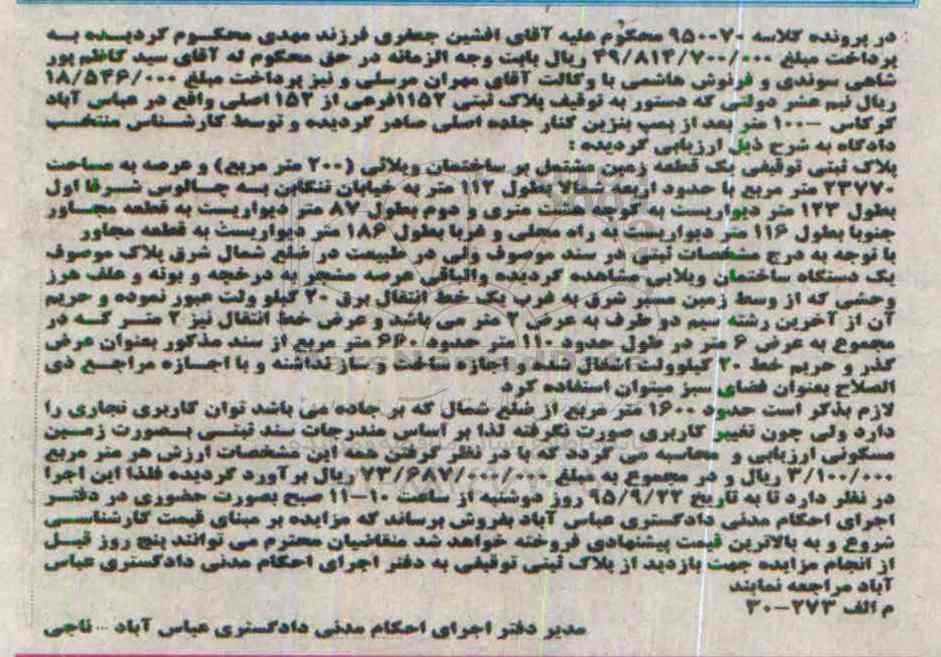 در پرونده کلاسه ۹۵۰۰۷۰ محکوم علیه آقای افشین جعفری فرزند مهدی محکوم گردیده به
پرداخت مبلغ ۴۹/۸۱۴/۷۰۰/۰۰۰ ریال بابت وجه الزمانه در حق محکوم له آقای سید کاظم پور
شاهی سوندی و فرنوش هاشمی با وکالت آقای مهران مرسلی و نیز پرداخت مبلغ ۱۸/۵۴۶/۰۰۰
ریال نیم عشر دولتی که دستور به توقیف پلاک ثبتی ۱۱۵۲فرعی از ۱۵۲ اصلی واقع در عباس آباد
کرکاس -۱۰۰ متر بعد از پمپ بنزین کنار جاده اصلی صادر گردیده و توسط کارشناس منتخب
دادگاه به شرح ذیل ارزیابی گردیده :
پلاک ثبتی توقیفی یک قطعه زمین مشتمل بر ساختمان ویلائی (۲۰۰ متر مربع) و عرصه به مساحت
۲۳۷۷۰ متر مربع با حدود اربعه شمالا بطول ۱۱۲ متر به خیابان تنکابن به چالوس شرقا اول
بطول ۱۲۳ متر دیواریست به کوچه هشت متری و دوم بطول ۸۷ متر دیواریست به قطعه مجاور
جنوبا بطول ۱۱۶ متر دیواریست به راه محلی و غربا بطول ۱۸۶ متر دیواریست به قطعه مجاور
با توجه به درج مشخصات ثبتی در سند موصوف ولی در طبیعت در ضلع شمال شرق پلاک موصوف
یک دستگاه ساختمان ویلایی مشاهده گردیده والباقی عرصه منجر به درخچه و بوته و علف هرز
وحشی که از وسط زمین مسیر شرق به غرب یک خط انتقال برق ۲۰ کیلو ولت عبور نموده و حریم
آن از آخرین رشته سیم دو طرف به عرض ۲ متر می باشد و عرض خط انتقال نیز ۲ متر که در
مجموع به عرض ۶ متر در طول حدود ۱۱۰ متر حدود ۶۶۰ متر مربع از سند مذکور بعنوان عرض
گذر و حریم خط ۲۰ کیلوولت اشغال شده و اجازه ساخت و ساز نداشته و با اجازه مراجع ذی
الصلاح بعنوان فضای سبز میتوان استفاده کرد
لازم بذکر است حدود ۱۶۰۰ متر مربع از ضلع شمال که بر جاده می باشد توان کاربری تجاری را
دارد ولی چون تغییر کاربری صورت نگرفته لذا بر اساس مندرجات سند ثبتی بصورت زمین
مسکونی ارزیابی و محاسبه می گردد که با در نظر گرفتن همه این مشخصات ارزش هر متر مربع
۳/۱۰۰/۰۰۰ ریال و در مجموع به مبلغ ۷۳/۶۸۷/۰۰۰/۰۰۰ ریال برآورد گردیده فلذا این اجرا
در نظر دارد تا به تاریخ ۹۵/۹/۲۲ روز دوشنبه از ساعت ۱۰-۱۱ صبح بصورت حضوری در دفتر
اجرای احکام مدنی دادگستری عباس آباد بفروش برساند که مزایده بر مبنای قیمت کارشناسی
شروع و به بالاترین قیمت پیشنهادی فروخته خواهد شد متقاضیان محترم می توانند پنج روز قبل
از انجام مزایده جهت بازدید از پلاک ثبتی توقیفی به دفتر اجرای احکام مدنی دادگستری عباس
آباد مراجعه نمایند
م الف ۲۷۳-۳۰
مدیر دفتر اجرای احکام مدنی دادگستری عباس آباد ... تاجی